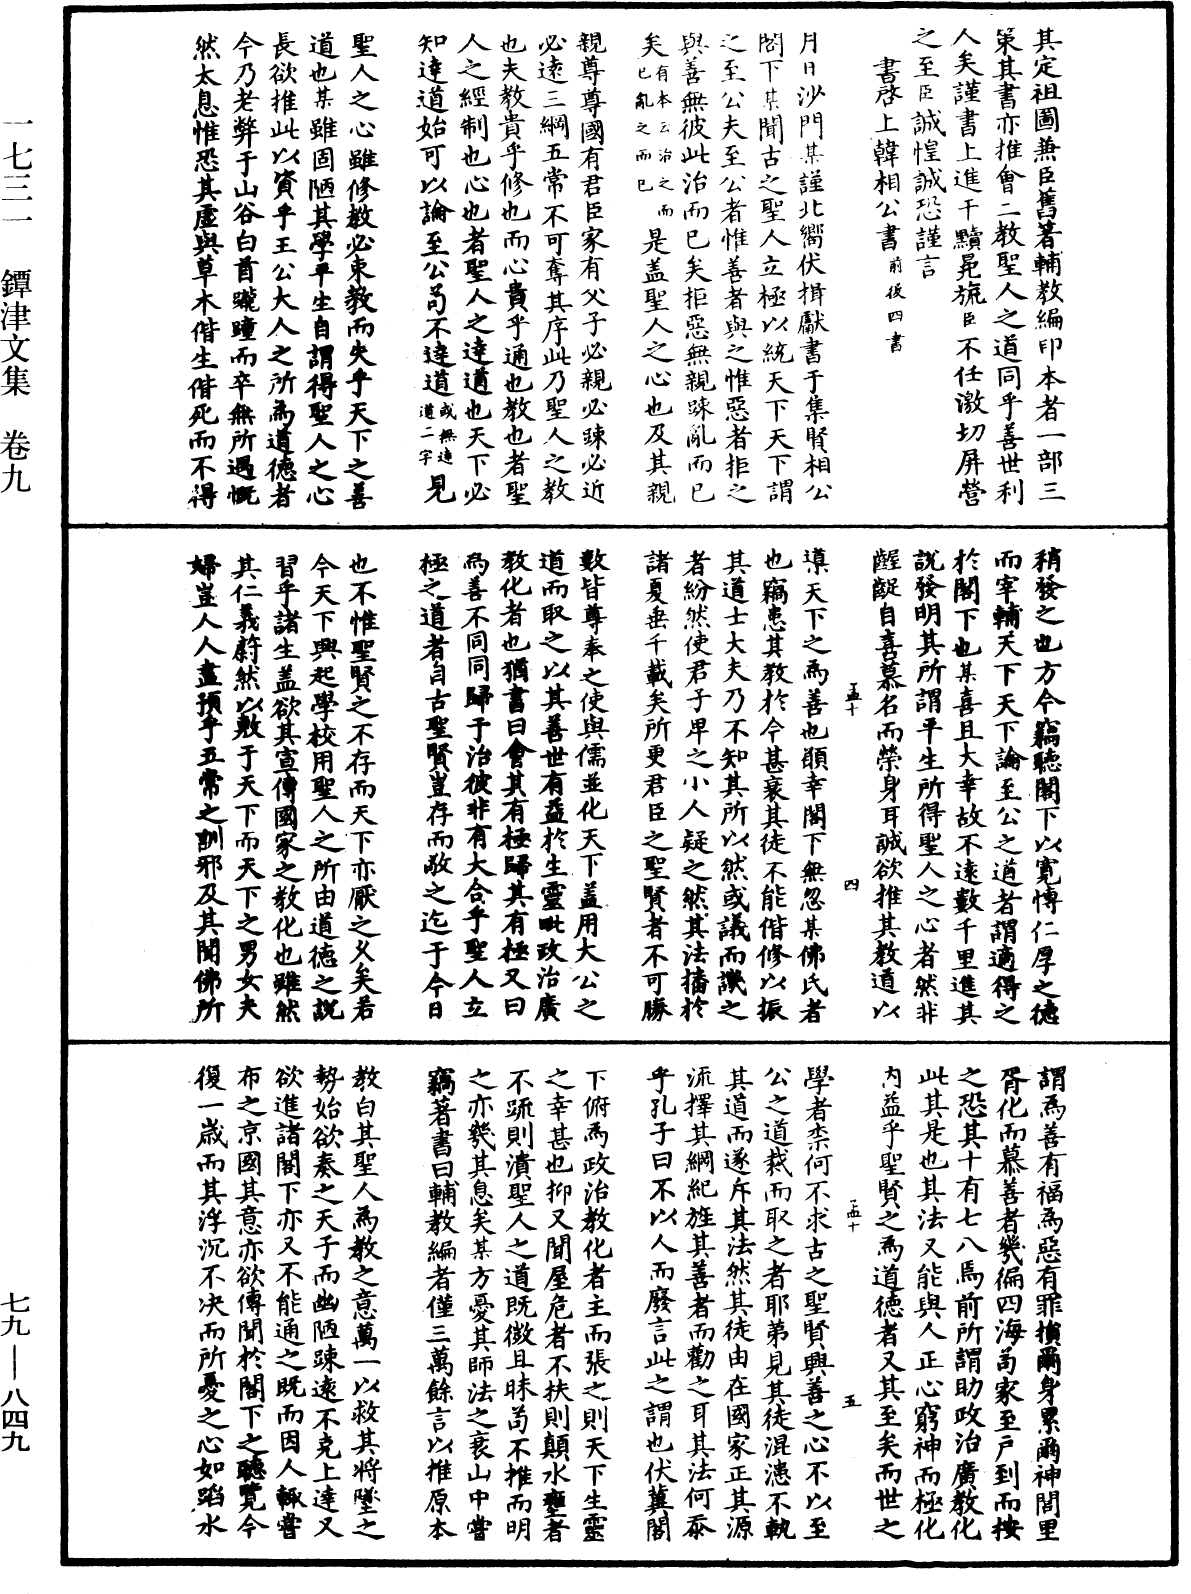 一七三一 鐔津文集 卷九
其定祖圖兼臣舊著輔教編印本者一部三
策其書亦推會二教聖人之道同乎善世利
人矣謹書上進干黷冕旒臣不任激切屏營
之至臣誠惶誠恐謹言
書啓上韓相公書前後四書
月日沙門某謹北嚮伏揖獻書于集賢相公
閤下某聞古之聖人立極以統天下天下謂
之至公夫至公者惟善者與之惟惡者拒之
與善無彼此治而已矣拒惡無親踈亂而已
矣有本云治之而已亂之而已是盖聖人之心也及其親
親尊尊國有君臣家有父子必親必踈必近
必遠三綱五常不可奪其序此乃聖人之教
也夫教貴乎修也而心貴乎通也教也者聖
人之經制也心也者聖人之達道也天下必
知達道始可以論至公苟不達道或無達道二字見
聖人之心雖修教必束教而失乎天下之善
道也某雖固陋其學平生自謂得聖人之心
長欲推此以資乎王公大人之所為道德者
今乃老弊于山谷白首躘踵而卒無所遇慨
然太息惟恐其虛與草木偕生偕死而不得
稍發之也方今竊聽閣下以寬愽仁厚之德
而宰輔天下天下論至公之道者謂適得之
於閣下也某喜且大幸故不遠數千里進其
說發明其所謂平生所得聖人之心者然非
齷齪自喜慕名而榮身耳誠欲推其教道以
孟十 四
導天下之為善也願幸閣下無忽某佛氏者
也竊患其教於今甚衰其徒不能偕修以振
其道士大夫乃不知其所以然或議而譏之
者紛然使君子卑之小人疑之然其法播於
諸夏垂千載矣所更君臣之聖賢者不可勝
數皆尊奉之使與儒並化天下盖用大公之
道而取之以其善世有益於生靈毗政治廣
教化者也猶書曰會其有極歸其有極又曰
為善不同同歸于治彼非有大合乎聖人立
極之道者自古聖賢豈存而敬之迄于今日
也不惟聖賢之不存而天下亦厭之乆矣若
今天下興起學校用聖人之所由道德之說
習乎諸生盖欲其宣傳國家之教化也雖然
其仁義蔚然以敷于天下而天下之男女夫
婦豈人人盡預乎五常之訓邪及其聞佛所
謂為善有福為惡有罪損爾身累爾神閭里
胥化而慕善者幾徧四海苟家至戶到而按
之恐其十有七八焉前所謂助政治廣教化
此其是也其法又能與人正心窮神而極化
內益乎聖賢之為道德者又其至矣而世之
孟十 五
學者柰何不求古之聖賢興善之心不以至
公之道裁而取之者耶第見其徒混漶不軌
其道而遂斥其法然其徒由在國家正其源
流擇其綱紀旌其善者而勸之耳其法何忝
乎孔子曰不以人而廢言此之謂也伏冀閤
下俯為政治教化者主而張之則天下生靈
之幸甚也抑又聞屋危者不扶則顛水壅者
不䟽則潰聖人之道既微且昧苟不推而明
之亦幾其息矣某方憂其師法之衰山中嘗
竊著書曰輔教編者僅三萬餘言以推原本
教白其聖人為教之意萬一以救其將墜之
勢始欲奏之天子而幽陋踈遠不克上達又
欲進諸閤下亦又不能通之既而因人輒嘗
布之京國其意亦欲傳聞於閤下之聽覽今
復一歲而其浮沉不決而所憂之心如蹈水
七九—八四九